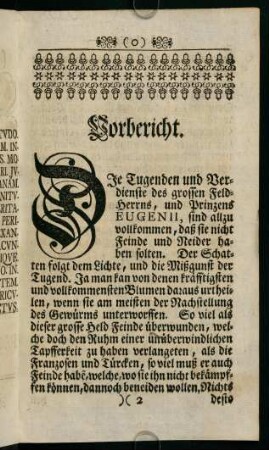 (0)
Vorbericht.
DIe Tugenden und Ver-
dienste des grossen Feld-
Herrns, und Prinzens
EUGENII, sind allzu
vollkommen, daß sie nicht
Feinde und Neider ha-
ben solten. Der Schat-
ten folgt dem Lichte, und die Mißgunst der
Tugend. Ja man kan von denen kräfftigsten
und vollkommensten Blumen daraus urthei-
len, wenn sie am meisten der Nachstellung
des Gewürms unterworffen. So viel als
dieser grosse Held Feinde überwunden, wel-
che doch den Ruhm einer unüberwindlichen
Tapfferkeit zu haben verlangeten, als die
Franzosen und Türcken, so viel muß er auch
Feinde habē, welche, wo sie ihn nicht bekämpf-
fen können, dannoch beneiden wollen. Nichts
)( 2 desto